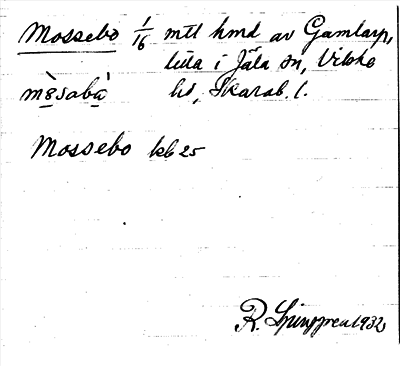 Mossebo 1/16 mtl hmd av Gamlarp,
lilla i Jäla sn, Vilske
mòsabà hd, Skarab. l.
Mossebo kb 25
R. Ljunggren 1932